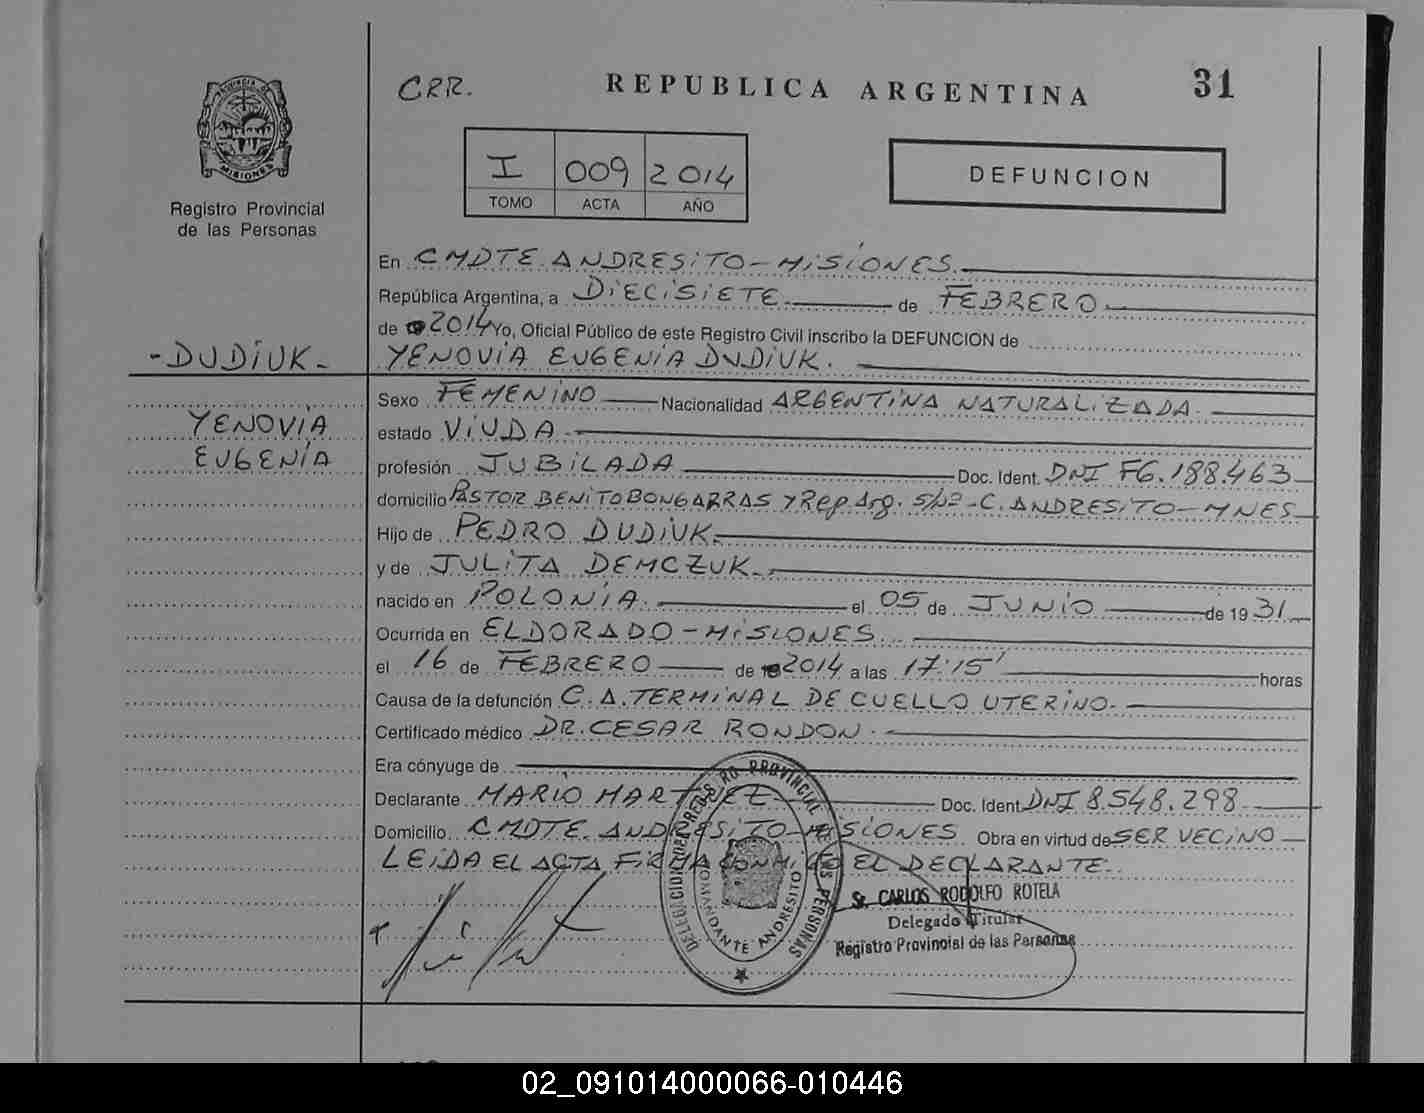 CRR.
REPUBLICA ARGENTINA
31
PROVINCIA DE MISIONES
Registro Provincial
de las Personas
I 009 2014
TOMO ACTA AÑO
DEFUNCION
En CMDTE ANDRESITO - MISIONES
República Argentina, a DIECISIETE de FEBRERO
de 2014 Yo, Oficial Público de este Registro Civil inscribo la DEFUNCION de
- DUDIUK -
YENOVIA EUGENIA DUDIUK.
YENOVIA
EUGENIA
Sexo FEMENINO Nacionalidad ARGENTINA NATURALIZADA.
estado VIUDA
profesión JUBILADA Doc. Ident. DNI F6.188.463
domicilio PASTOR BENITO BONGARRAS Y Rep Arg. S/Nº - C. ANDRESITO - MNES
Hijo de PEDRO DUDIUK.
y de JULITA DEMCZUK.
nacido en POLONIA. el 05 de JUNIO de 19 31
Ocurrida en ELDORADO - MISIONES.
el 16 de FEBRERO de 2014 a las 17:15' horas
Causa de la defunción C.A. TERMINAL DE CUELLO UTERINO.
Certificado médico DR. CESAR RONDON.
Era cónyuge de
Declarante MARIO MARTINEZ Doc. Ident. DNI 8.548.298
Domicilio CMDTE. ANDRESITO - MISIONES Obra en virtud de SER VECINO
LEIDA EL ACTA FIRMA CONMIGO EL DECLARANTE.
DELEGACION DEL REGISTRO PROVINCIAL DE LAS PERSONAS
COMANDANTE ANDRESITO
Sr. CARLOS RODOLFO ROTELA
Delegado Titular
Registro Provincial de las Personas
02_091014000066-010446